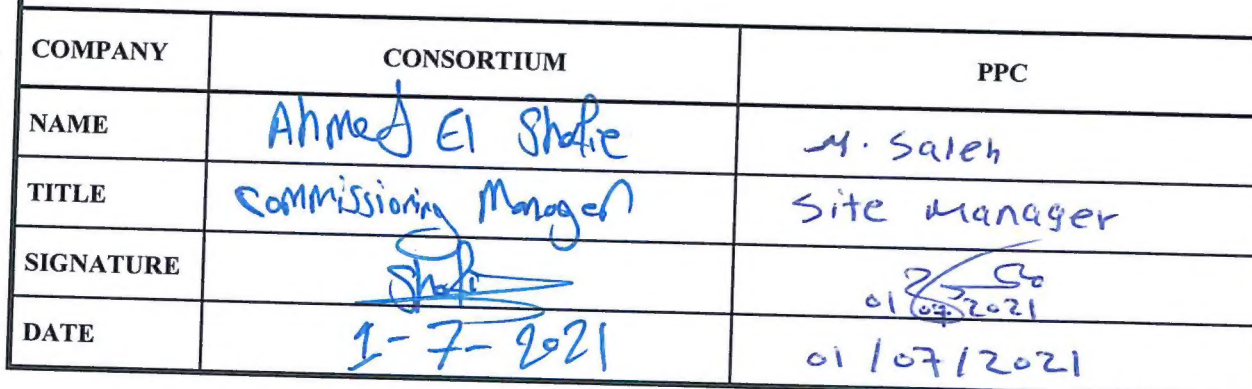 COMPANY CONSORTIUM PPC
NAME Ahmed El Shafie M. Saleh
TITLE Commissioning Manager Site Manager
SIGNATURE Shafi
01 07 2021
DATE 1-7-2021 01/07/2021